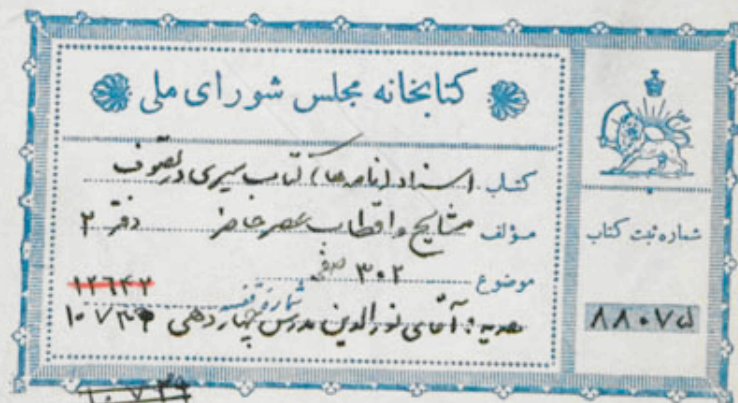 کتابخانه مجلس شورای ملی
کتاب اسناد (نامه ها) کتاب سیری در تصوف
مؤلف مشایخ و اقطاب عصر حاضر دفتر ۲
موضوع ۳۰۲ صفحه
۱۲۶۴۲
شماره قفسه
هدیه: آقای نورالدین مدرس چهاردهی ۱۰۷۳۹
شماره ثبت کتاب
۸۸۰۷۵
۱۰۷۳۹